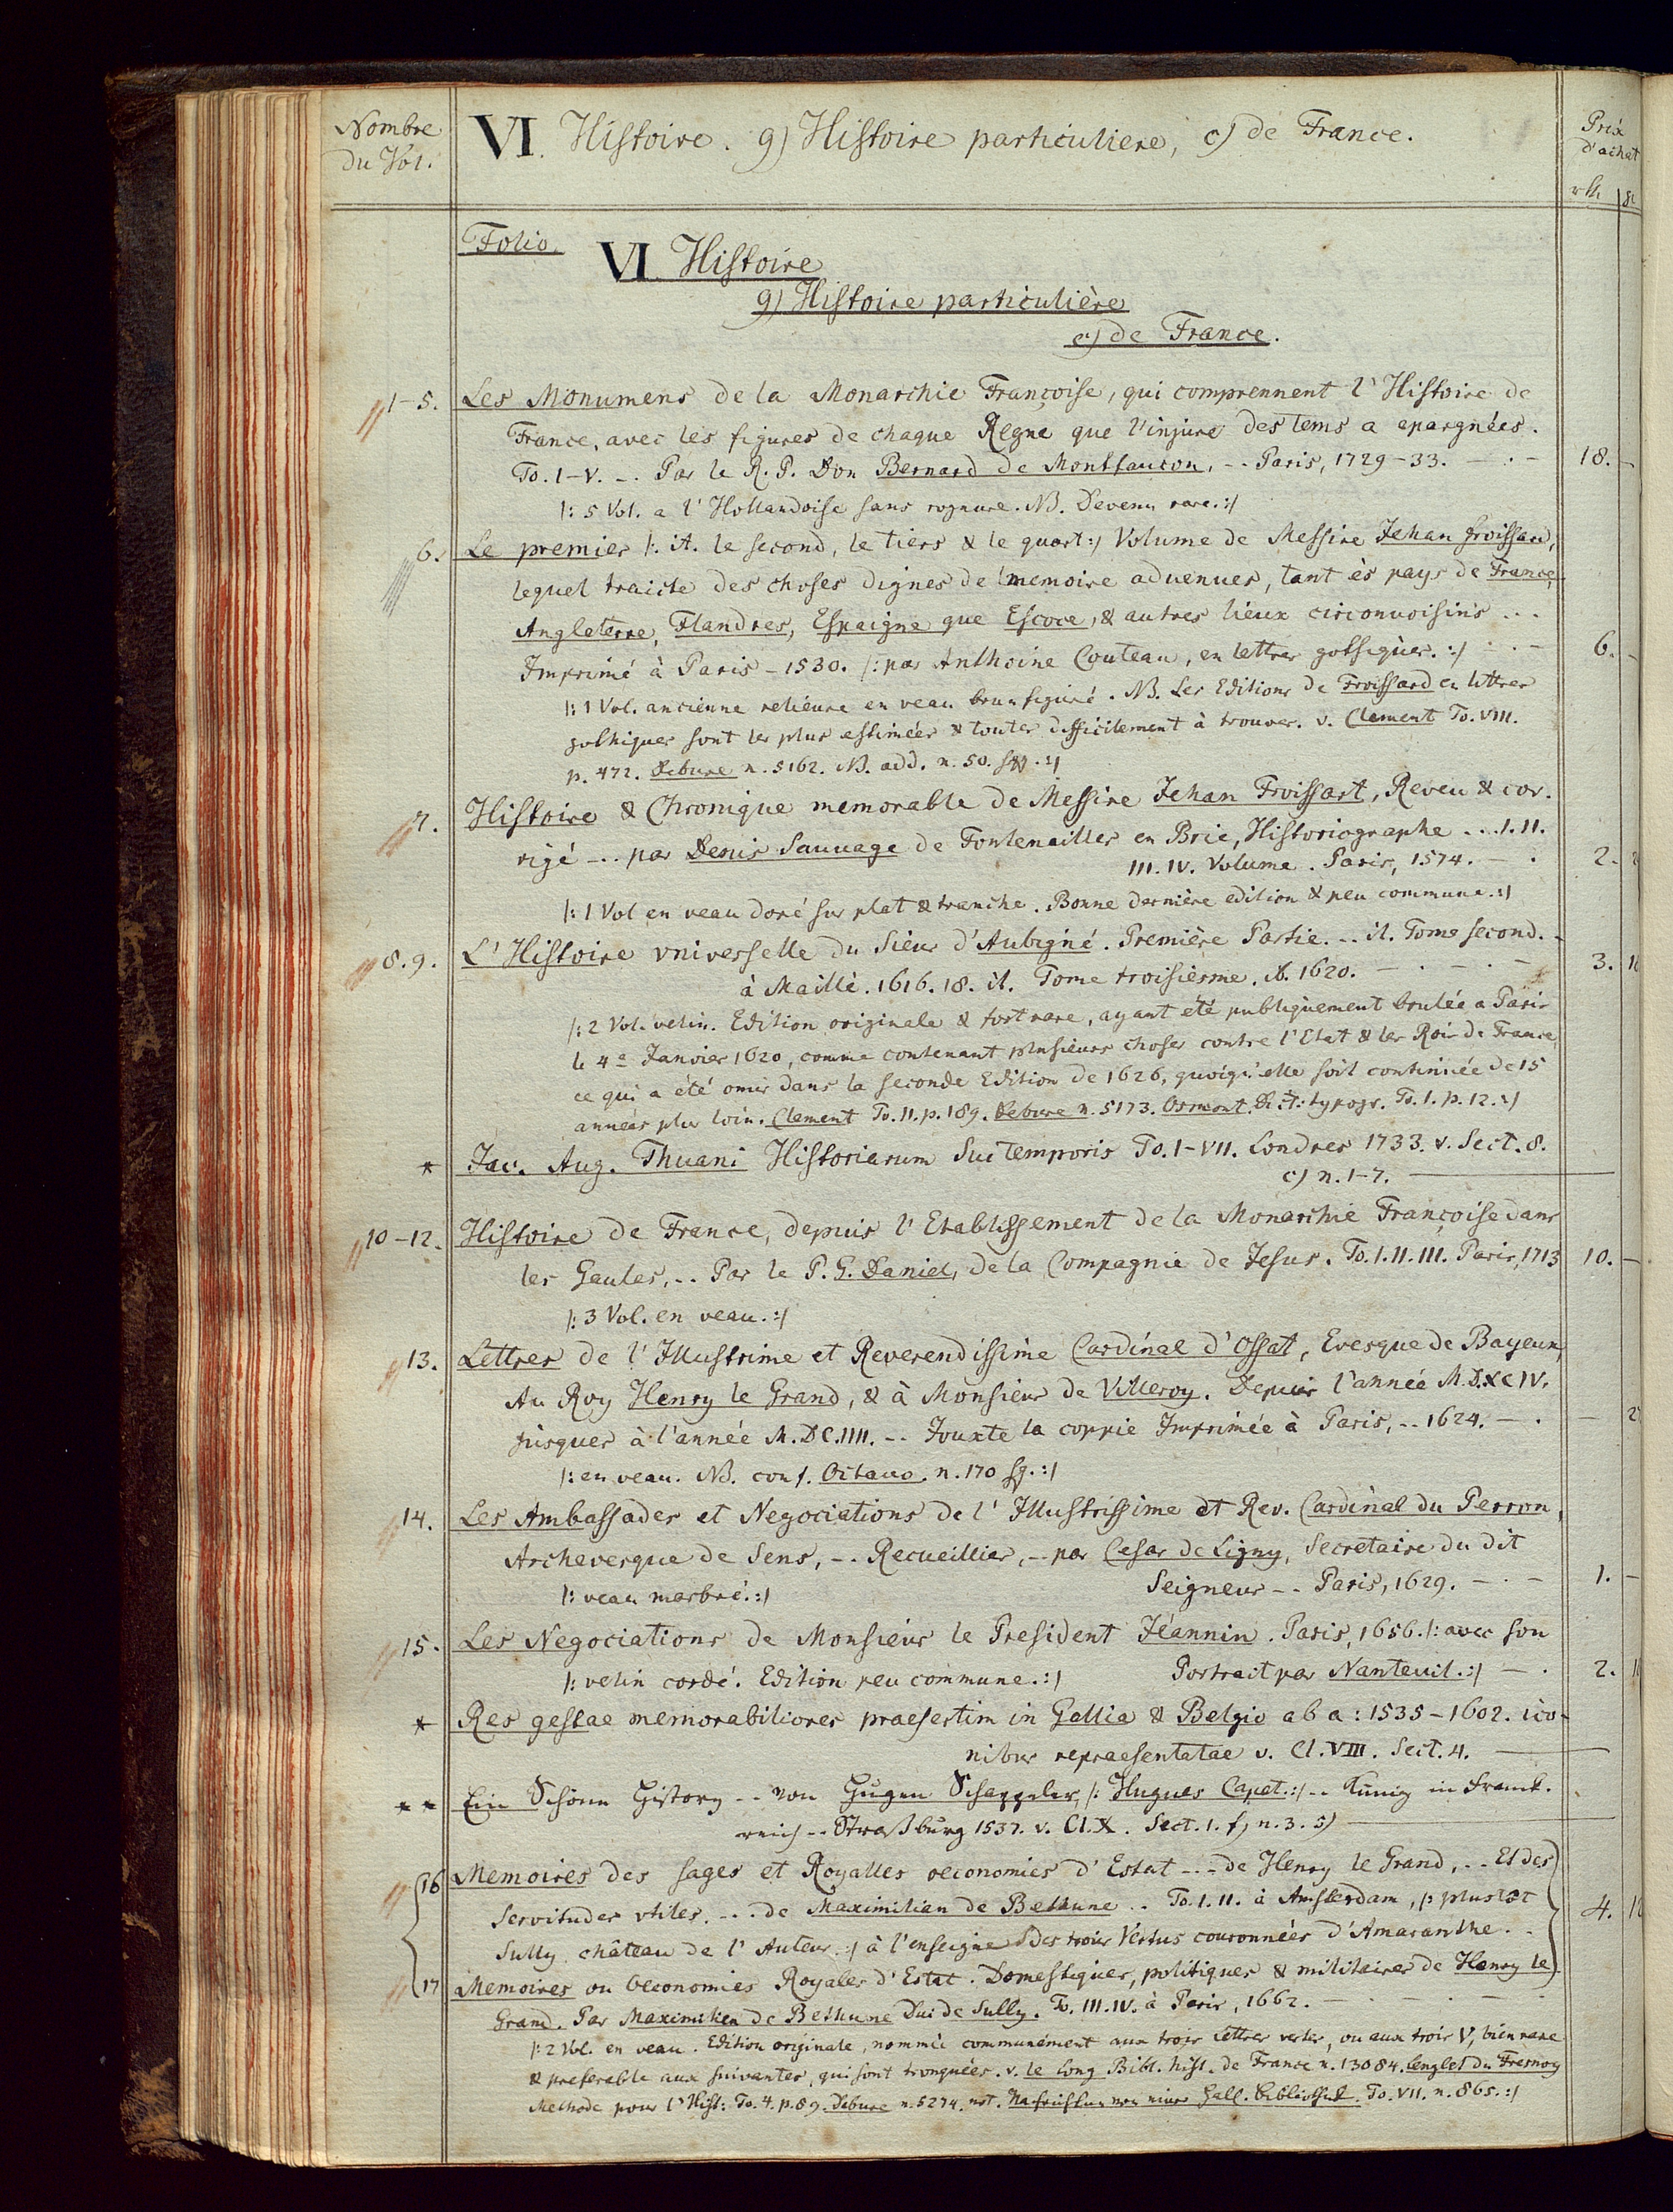 Nombre
du Vol.
VI. Histoire. g) Histoire particuliere, c) de France.
Prix
d'achat
rth
Folio.
VI. Histoire
g) Histoire particulière
c) de France.
1-5. Les Monumens de la Monarchie Françoise, qui comprennent l'Histoire de
France, avec les figures de chaque Regne que l'injure des tems a epargnées.
To. I-V. -- Par le R. P. Don Bernard de Montfaucon, -- Paris, 1729-33. - . - 18. -
/: 5 Vol. a l'Hollandoise sans rognure. NB. Devenu rare. :/
6. Le premier /: it. le second, le tiers & le quart :/ Volume de Messire Jehan froissart,
lequel traicte des choses dignes de memoire aduenues, tant ès pays de France,
Angleterre, Flandres, Espaigne que Escoce, & autres lieux circonuoisins ...
Imprimé à Paris - 1530. /: par Anthoine Couteau, en lettres gothiques. :/ - . - 6. -
/: 1 Vol. ancienne reliéure en veau brun figuré. NB. Les Editions de Froissard en lettres
gothiques sont les plus estimées & toutes difficilement à trouver. v. Clement To. VIII.
p. 472. Debure n. 5162. NB. add. n. 50. sqq. :/
7. Histoire & Chronique memorable de Messire Jehan Froissart, Reveu & cor.
rigé -.. par Denis Sauvage de Fontenailles en Brie, Historiographe ... I. II.
III. IV. Volume. Paris, 1574. - . 2.
/: 1 Vol en veau doré sur plat & tranche. Bonne dernière edition & peu commune. :/
8. 9. L'Histoire vniverselle du Sieur d'Aubigné. Première Partie. -- it. Tome second. -
à Maillé. 1616. 18. it. Tome troisiesme. ib. 1620. - . - . - 3.
/: 2 Vol. velin. Edition originale & fort rare, ayant été publiquement brulée a Paris
le 4e Janvier 1620, comme contenant plusieurs choses contre l'Etat & les Rois de France,
ce qui a été omis dans la seconde Edition de 1626, quoiqu'elle soit continuée de 15
années plus loin. Clement To. II. p. 189. Debure n. 5173. Osmont Dict: typogr. To. I. p. 12. :/
* Jac. Aug. Thuani Historiarum Sui temporis To. I-VII. Londres 1733. v. Sect. 8.
c) n. 1-7.
10-12. Histoire de France, depuis l'Etablissement de la Monarchie Françoise dans
les Gaules, .. Par le P. G. Daniel, de la Compagnie de Jesus. To. I. II. III. Paris, 1713 10. -
/: 3 Vol. en veau. :/
13. Lettres de l'Illustrime et Reverendissime Cardinal d'Ossat, Evesque de Bayeux,
Au Roy Henry le Grand, & à Monsieur de Villeroy. Depuis l'année M.D.XCIV.
jusques à l'année M.DC.IIII. -- Jouxte la coppie Imprimée à Paris, -- 1624. - . -
/: en veau. NB. conf. Octavo. n. 170 sq. :/
14. Les Ambassades et Negociations de l'Illustrissime et Rev. Cardinal du Perron,
Archevesque de Sens, -- Recueillies, -- par Cesar de Ligny, Secretaire du dit
/: veau marbré. :/ Seigneur -- Paris, 1629. - . - 1. -
15. Les Negociations de Monsieur le President Jéannin. Paris, 1656. /: avec son
/: velin cordé. Edition peu commune. :/ Portrait par Nanteuil. :/ - . 2.
* Res gestae memorabiliores praesertim in Gallia & Belgio ab a: 1535-1602. ico-
nibus repraesentatae v. Cl. VIII. Sect. 4.
** Ein Schönn History -- von Hugen Schappeler, /: Hugues Capet. :/ -- Künig in Franck.
reich -- Straßburg 1537. v. Cl. X. Sect. 1. f) n. 3. 5)
16 Memoires des sages et Royalles oeconomies d'Estat --- de Henry le Grand, -- Et des
Servitudes vtiles, --- de Maximilian de Bethune .. To. I. II. à Amsterdam, /: plustot 4.
Sully château de l'Auteur. :/ à l'enseigne des trois Vertus couronnées d'Amaranthe. -
17 Memoires ou Oeconomies Royales d'Estat. Domestiques, politiques & militaires de Henry le
Grand. Par Maximilien de Bethune Duc de Sully. To. III. IV. à Paris, 1662. - . - . -
/: 2 Vol. en veau. Edition originale, nommée communément aux trois lettres vertes, ou aux trois V, bien rare
& preferable aux suivantes, qui sont tronquées. v. le Long Bibl. hist. de France n. 13084. Lenglet du Fresnoy
Methode pour l'Hist: To. 4. p. 89. Debure n. 5274. not. Nachrichten von einer Hall. Bibliothek. To. VII. n. 865. :/